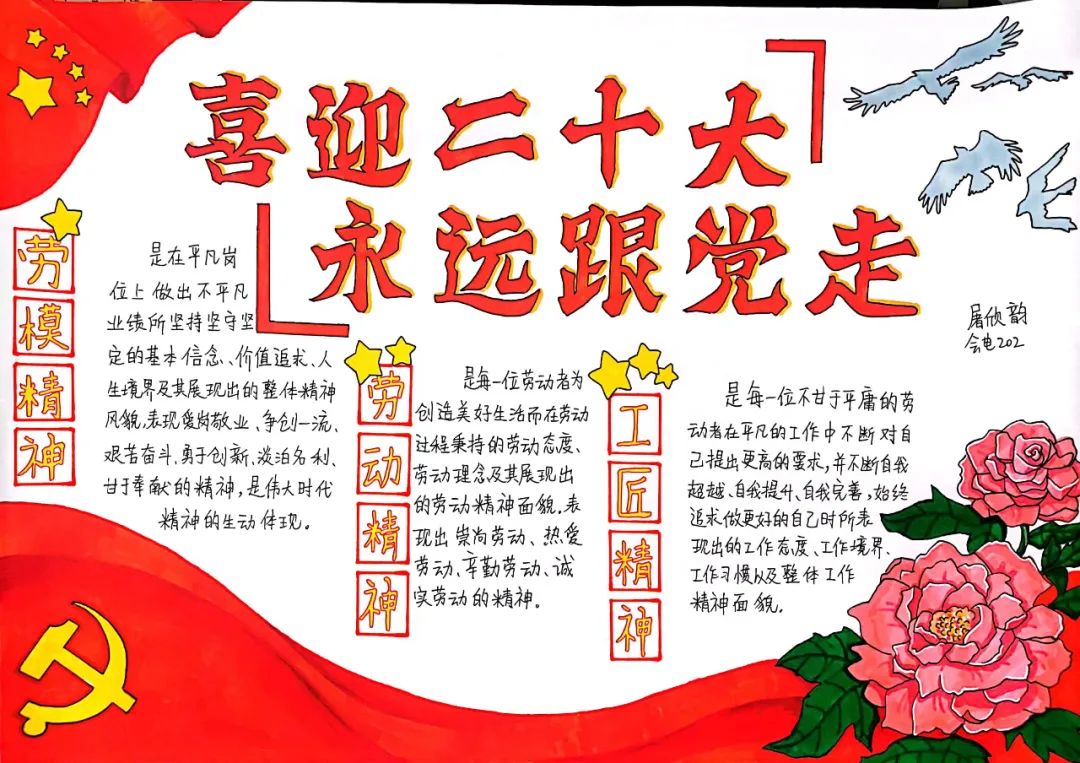 喜迎二十大
永远跟党走
屠欣韵
会电202
劳模精神
是在平凡岗
位上做出不平凡
业绩所坚持坚守坚
定的基本信念、价值追求、人
生境界及其展现出的整体精神
风貌,表现爱岗敬业、争创一流、
艰苦奋斗、勇于创新、淡泊名利、
甘于奉献的精神,是伟大时代
精神的生动体现。
劳动精神
是每一位劳动者为
创造美好生活而在劳动
过程秉持的劳动态度、
劳动理念及其展现出
的劳动精神面貌。表
现出崇尚劳动、热爱
劳动、辛勤劳动、诚
实劳动的精神。
工匠精神
是每一位不甘于平庸的劳
动者在平凡的工作中不断对自
己提出更高的要求,并不断自我
超越、自我提升、自我完善,始终
追求做更好的自己时所表
现出的工作态度、工作境界、
工作习惯以及整体工作
精神面貌。